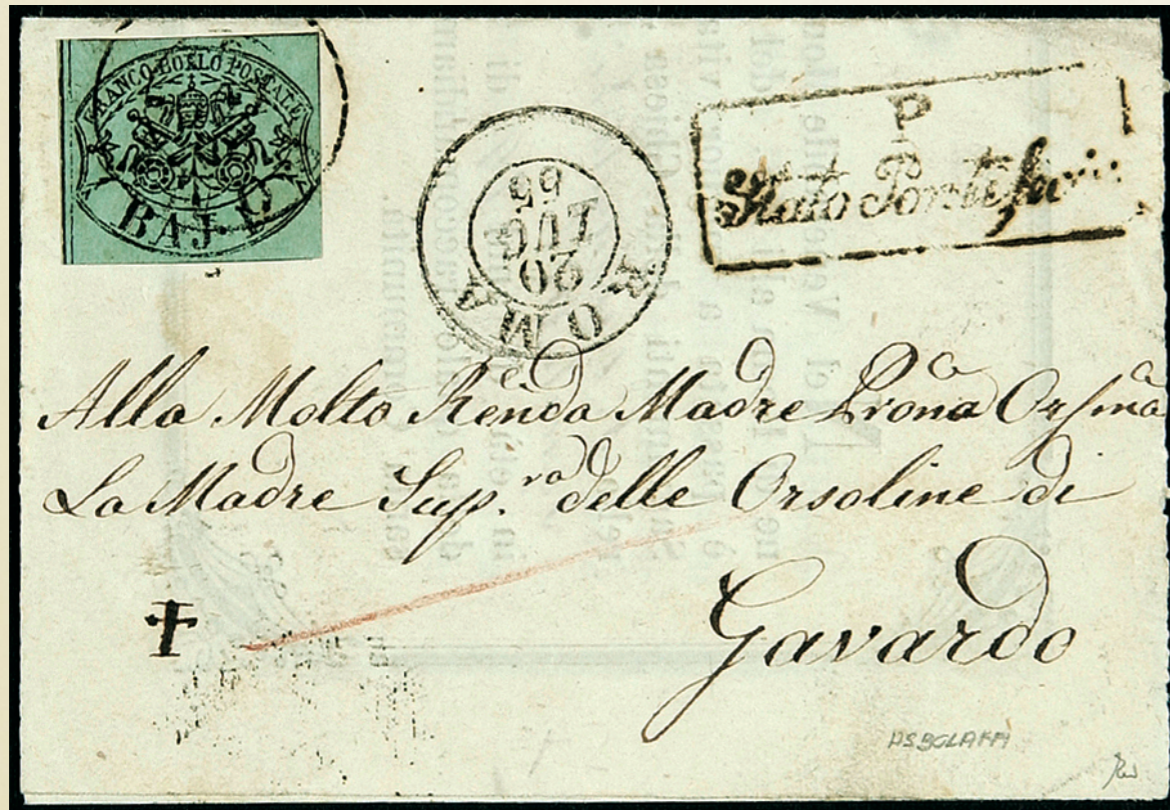 FRANCO BOLLO POSTALE
BAJ
ROMA
20
LUG
55
P
Stato Pontificio
Alla Molto Rend.a Madre Prona Ca Ossma
La Madre Sup.ra delle Orsoline di
Gavardo